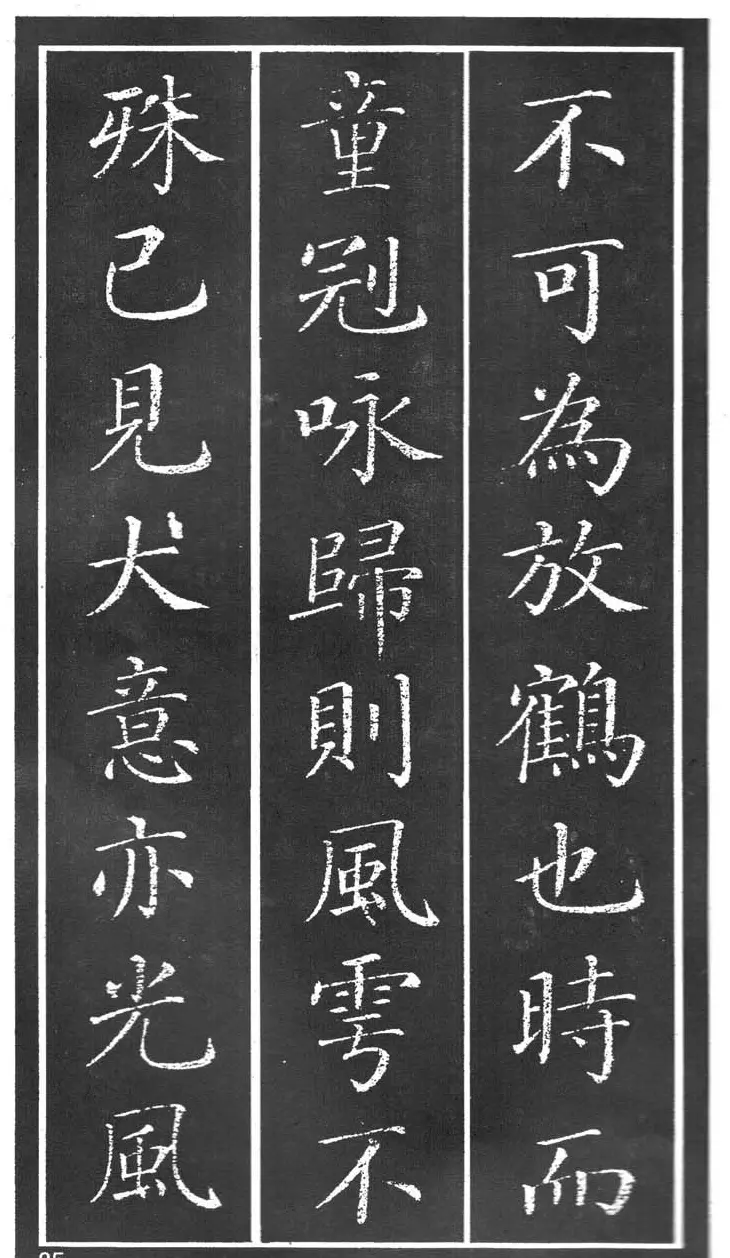 不可為放鶴也時而
童冠咏歸則風雩不
殊已見大意亦光風